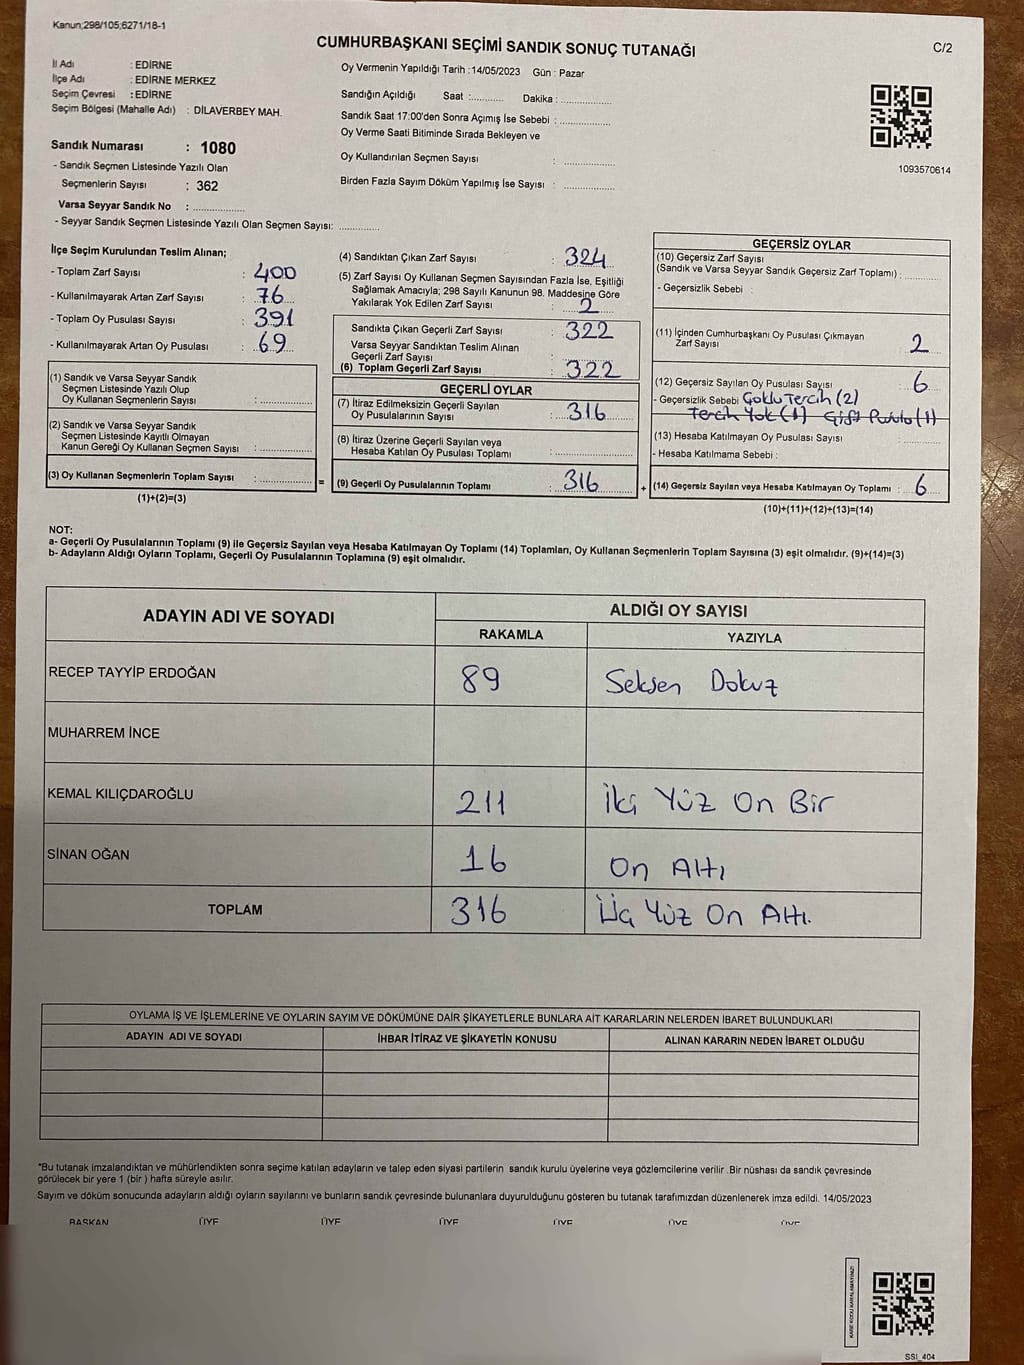 Kanun;298/105;6271/18-1
CUMHURBAŞKANI SEÇİMİ SANDIK SONUÇ TUTANAĞI
C/2
İl Adı : EDİRNE
İlçe Adı : EDİRNE MERKEZ
Seçim Çevresi : EDİRNE
Seçim Bölgesi (Mahalle Adı) : DİLAVERBEY MAH.
Sandık Numarası : 1080
- Sandık Seçmen Listesinde Yazılı Olan
Seçmenlerin Sayısı : 362
Varsa Seyyar Sandık No : ..................
- Seyyar Sandık Seçmen Listesinde Yazılı Olan Seçmen Sayısı: ..............
Oy Vermenin Yapıldığı Tarih :14/05/2023 Gün : Pazar
Sandığın Açıldığı Saat :........... Dakika : .................
Sandık Saat 17:00'den Sonra Açımış İse Sebebi : .................
Oy Verme Saati Bitiminde Sırada Bekleyen ve
Oy Kullandırılan Seçmen Sayısı : .................
Birden Fazla Sayım Döküm Yapılmış İse Sayısı : .................
1093570614
İlçe Seçim Kurulundan Teslim Alınan;
- Toplam Zarf Sayısı : 400
- Kullanılmayarak Artan Zarf Sayısı : 76
- Toplam Oy Pusulası Sayısı : 391
- Kullanılmayarak Artan Oy Pusulası : 69
(1) Sandık ve Varsa Seyyar Sandık
Seçmen Listesinde Yazılı Olup
Oy Kullanan Seçmenlerin Sayısı : .................
(2) Sandık ve Varsa Seyyar Sandık
Seçmen Listesinde Kayıtlı Olmayan
Kanun Gereği Oy Kullanan Seçmen Sayısı : .................
(3) Oy Kullanan Seçmenlerin Toplam Sayısı : .................
(1)+(2)=(3)
=
(4) Sandıktan Çıkan Zarf Sayısı : 324
(5) Zarf Sayısı Oy Kullanan Seçmen Sayısından Fazla İse, Eşitliği
Sağlamak Amacıyla; 298 Sayılı Kanunun 98. Maddesine Göre
Yakılarak Yok Edilen Zarf Sayısı : 2
Sandıkta Çıkan Geçerli Zarf Sayısı : 322
Varsa Seyyar Sandıktan Teslim Alınan
Geçerli Zarf Sayısı :
(6) Toplam Geçerli Zarf Sayısı : 322
GEÇERLİ OYLAR
(7) İtiraz Edilmeksizin Geçerli Sayılan
Oy Pusulalarının Sayısı : 316
(8) İtiraz Üzerine Geçerli Sayılan veya
Hesaba Katılan Oy Pusulası Toplamı : .................
(9) Geçerli Oy Pusulalarının Toplamı : 316
+
GEÇERSİZ OYLAR
(10) Geçersiz Zarf Sayısı
(Sandık ve Varsa Seyyar Sandık Geçersiz Zarf Toplamı) : .............
- Geçersizlik Sebebi :
(11) İçinden Cumhurbaşkanı Oy Pusulası Çıkmayan
Zarf Sayısı : 2
(12) Geçersiz Sayılan Oy Pusulası Sayısı : 6
- Geçersizlik Sebebi Çoklu Tercih (2)
Tercih Yok (1) Çift Pusula (1)
(13) Hesaba Katılmayan Oy Pusulası Sayısı : .............
- Hesaba Katılmama Sebebi :
(14) Geçersiz Sayılan veya Hesaba Katılmayan Oy Toplamı : 6
(10)+(11)+(12)+(13)=(14)
NOT:
a- Geçerli Oy Pusulalarının Toplamı (9) ile Geçersiz Sayılan veya Hesaba Katılmayan Oy Toplamı (14) Toplamları, Oy Kullanan Seçmenlerin Toplam Sayısına (3) eşit olmalıdır. (9)+(14)=(3)
b- Adayların Aldığı Oyların Toplamı, Geçerli Oy Pusulalarının Toplamına (9) eşit olmalıdır.
ADAYIN ADI VE SOYADI ALDIĞI OY SAYISI
RAKAMLA YAZIYLA
RECEP TAYYİP ERDOĞAN 89 Seksen Dokuz
MUHARREM İNCE
KEMAL KILIÇDAROĞLU 211 İki Yüz On Bir
SİNAN OĞAN 16 On Altı
TOPLAM 316 Üç Yüz On Altı.
OYLAMA İŞ VE İŞLEMLERİNE VE OYLARIN SAYIM VE DÖKÜMÜNE DAİR ŞİKAYETLERLE BUNLARA AİT KARARLARIN NELERDEN İBARET BULUNDUKLARI
ADAYIN ADI VE SOYADI İHBAR İTİRAZ VE ŞİKAYETİN KONUSU ALINAN KARARIN NEDEN İBARET OLDUĞU
*Bu tutanak imzalandıktan ve mühürlendikten sonra seçime katılan adayların ve talep eden siyasi partilerin sandık kurulu üyelerine veya gözlemcilerine verilir .Bir nüshası da sandık çevresinde
görülecek bir yere 1 (bir ) hafta süreyle asılır.
Sayım ve döküm sonucunda adayların aldığı oyların sayılarını ve bunların sandık çevresinde bulunanlara duyurulduğunu gösteren bu tutanak tarafımızdan düzenlenerek imza edildi. 14/05/2023
BAŞKAN ÜYE ÜYE ÜYE ÜYE ÜYE ÜYE
KARE KODU KARALAMAYINIZ!
SSİ_404